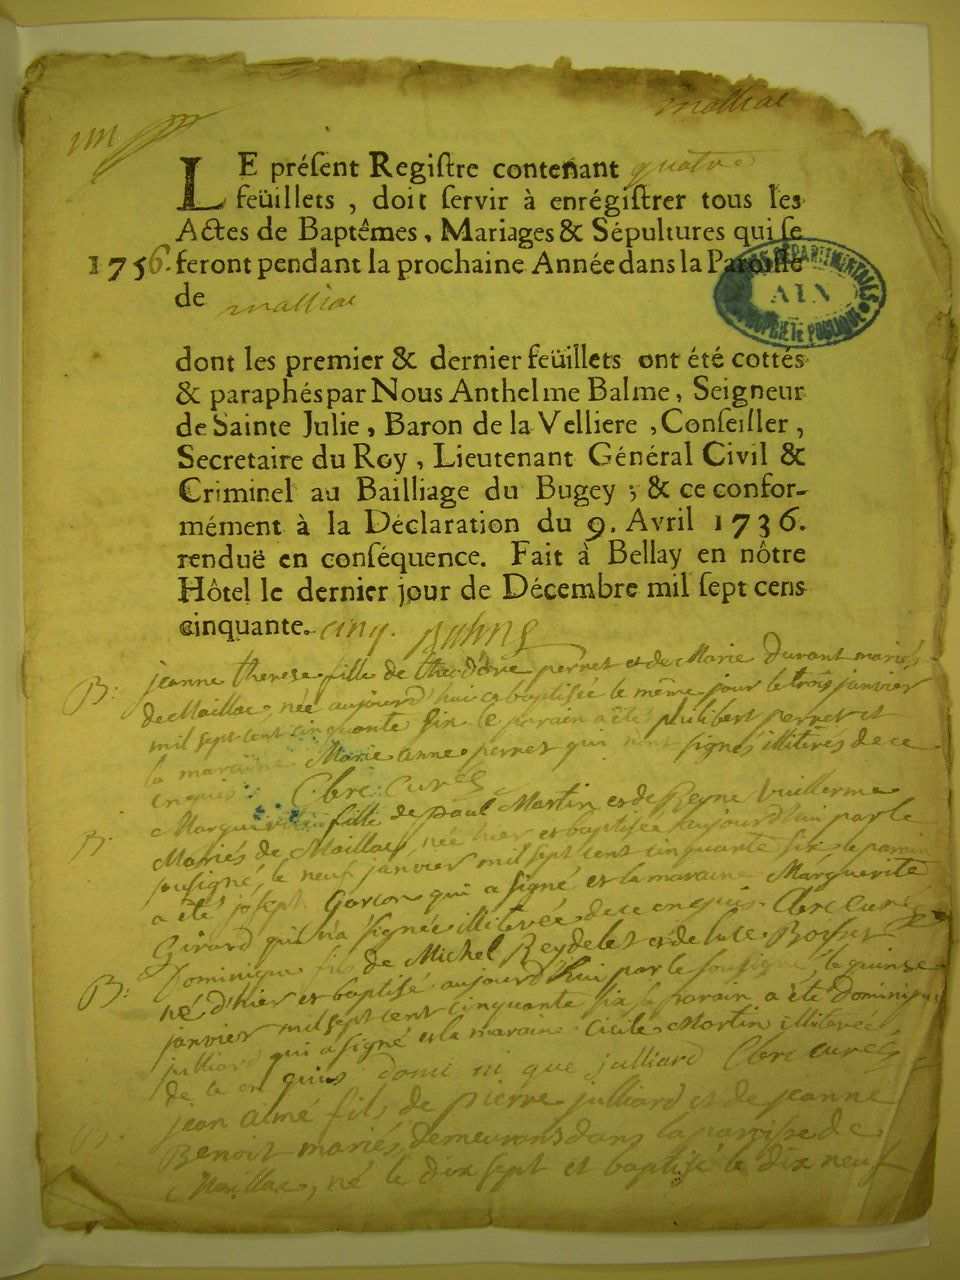 malliac
LE préſent Regiſtre contenant quatre
feüillets, doit ſervir à enrégiſtrer tous les
Actes de Baptêmes, Mariages & Sépultures qui ſe
1756. feront pendant la prochaine Année dans la Paroiſſe
de malliac
ARCHIVES DÉPARTEMENTALES
AIN
PROPRIÉTÉ PUBLIQUE
dont les premier & dernier feüillets ont été cottés
& paraphés par Nous Anthelme Balme, Seigneur
de Sainte Julie, Baron de la Velliere, Conſeiller,
Secretaire du Roy, Lieutenant Général Civil &
Criminel au Bailliage du Bugey; & ce confor-
mément à la Déclaration du 9. Avril 1736.
renduë en conſéquence. Fait à Bellay en nôtre
Hôtel le dernier jour de Décembre mil ſept cens
cinquante. cinq.
B: jeanne therese fille de theodore perret et de Marie Durant mariés
de Maillac, née aujourd'hui et baptisée le même jour le trois janvier
mil sept cent cinquante six le parain a été philibert perret et
la maraine Marie anne perret qui n'ont signés illiterés de ce
enquis. Clerc curé
B: Marguerite fille de paul Martin et de Reyne Vuillerme
Mariés de Maillac, née hier et baptisée aujourd'hui par le
sousigné, le neuf janvier mil sept cent cinquante six, le parain
a été joseph Garcon qui a signé et la maraine Marguerite
Girard qui n'a signée illiterée de ce enquis. Clerc curé
B: Dominique fils de Michel Reydelet et de luce Bossu
né d'hier et baptisé aujourd'hui par le sousigné, le quinze
janvier mil sept cent cinquante six le parain a été Dominique
julliard qui a signé et la maraine Cicile Martin illiterée
de ce enquis Domi ni que julliard Clerc curé
B: jean aimé fils de pierre julliard et de jeanne
Benoit mariés, demeurans dans la paroisse de
Maillac, né le dix sept et baptisé le dix neuf